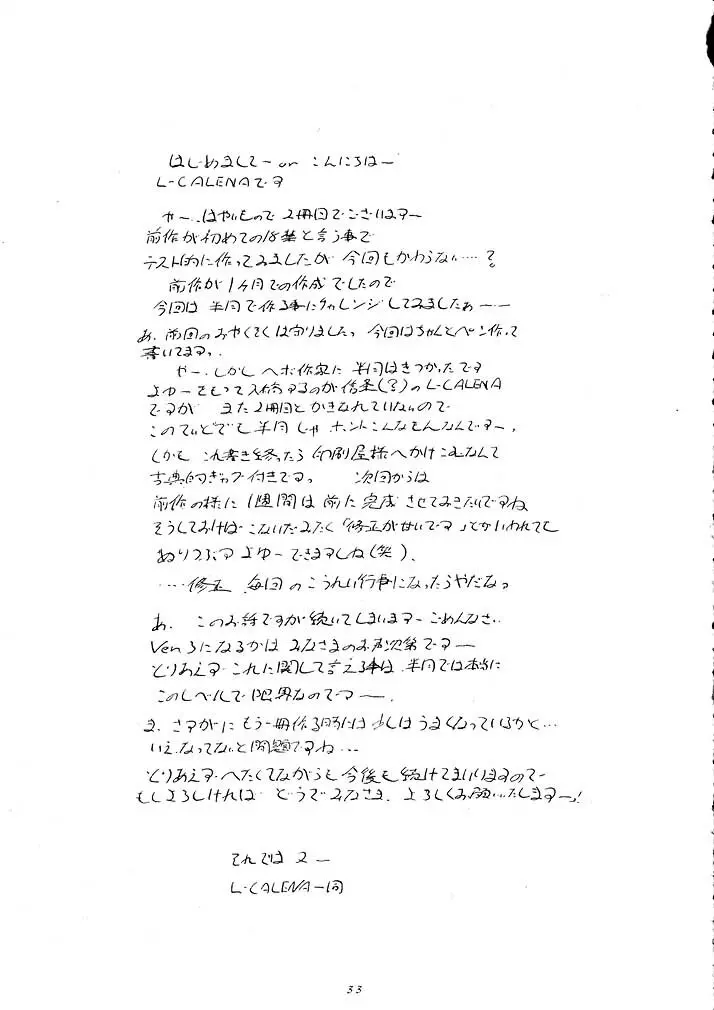 はじめましてー or こんにちはー
L-CALENAです
やー、はやいもので 2冊目でございますー
前作が初めての18禁と言う事で
テスト的に作ってみましたが 今回もかわらない……?
前作が1ヶ月での作成でしたので
今回は 半月で作る事にチャレンジしてみましたぁーー
あ、前回のおやくそくは守りましたっ 今回はちゃんとペン作って
書いてますっ、
やー、しかしヘボ作家に 半月はきつかったです
よゆーをもって入稿するのが信条(?)のL-CALENA
ですが まだ2冊目とかきなれていないので
このていどでも半月じゃ ホントこんなもんなんですー、
しかも これ書き終ったら 印刷屋様へかけこむなんて
古典的ギャグ付きです。 次回からは
前作の様に 1週間は前に完成させておきたいですね
そうしておけば こないだみたく「修正が甘いです」とかいわれても
ぬりつぶすよゆーできますしね(笑)、
……修正 毎回のこうれい行事になったらやだなっ
あ、 このお話ですが続いてしまいますー ごめんなさい
Ver 3になるかは みなさまのお声次第ですー
とりあえず これに関して言える事は、半月では本当に
このレベルで限界なのですー、
ま、さすがに もう一冊作る頃には 少しはうまくなっているかと…
いえ、なってないと問題ですね…
とりあえず へたくそながらも 今後も続けてまいりますのでー
もしよろしければ どうぞみなさま、よろしくお願いいたしますーっ!
それでは 2ー
L-CALENA一同
33